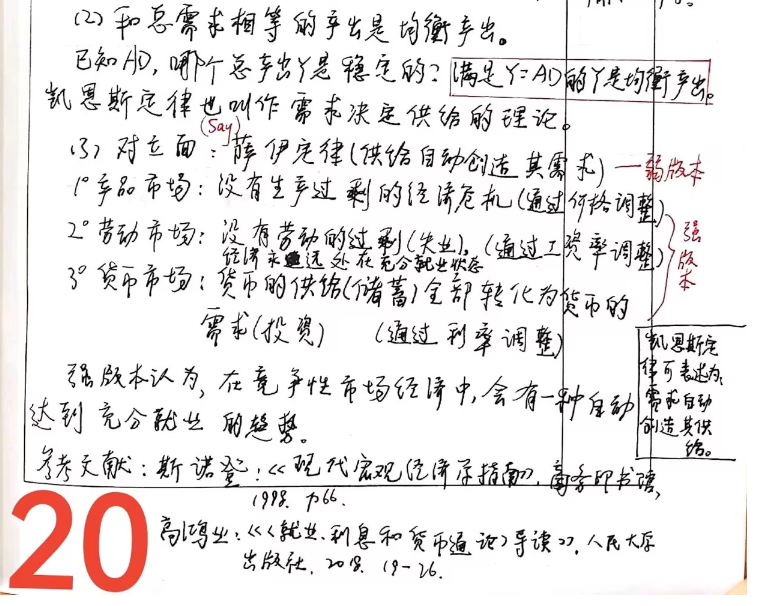 (2) 和总需求相等的产出是均衡产出。
已知AD，哪个总产出Y是稳定的？满足Y=AD的Y是均衡产出。
凯恩斯定律也叫作需求决定供给的理论。
(Say)
(3) 对立面：萨伊定律(供给自动创造其需求) — 弱版本
1° 产品市场：没有生产过剩的经济危机(通过价格调整)
2° 劳动市场：没有劳动的过剩(失业)。(通过工资率调整)
经济永远处在充分就业状态
强版本
3° 货币市场：货币的供给(储蓄)全部转化为货币的
需求(投资) (通过利率调整)
凯恩斯定
律可表述为:
需求自动
创造其供
给。
强版本认为，在竞争性市场经济中，会有一种自动
达到充分就业的趋势。
参考文献：斯诺登：《现代宏观经济学指南》，商务印书馆，
1998. P66.
高鸿业：《〈就业、利息和货币通论〉导读》，人民大学
出版社, 2018. 19-26.
20